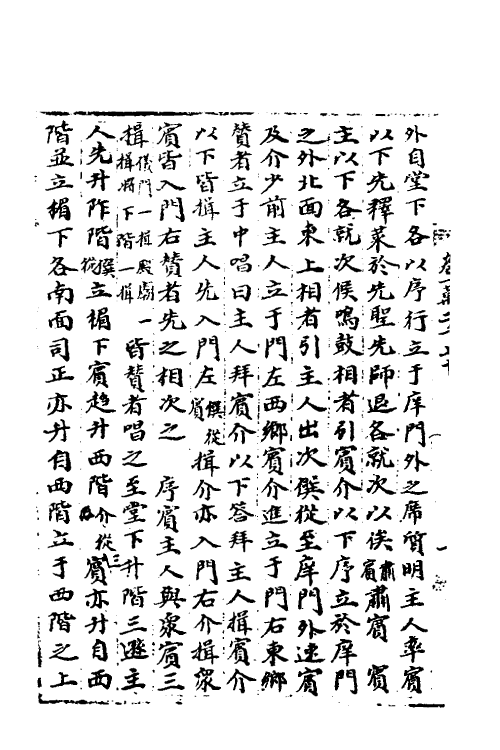 外自堂下各以序行立于庠門外之席質明主人率賓
以下先釋菜於先聖先師退各就次以俟肅賓肅賓 賓
主以下各就次候鳴鼓相者引賓介以下序立於庠門
之外北面東上相者引主人出次僎從至庠門外速賓
及介少前主人立于門左西鄉賓介進立于門右東鄉
贊者立于中唱曰主人拜賓介以下答拜主人揖賓介
以下皆揖主人先入門左僎從賓揖介亦入門右介揖眾
賓皆入門右贊者先之相次之 序賓主人與眾賓三
揖儀門一揖殿廟一揖將下階一揖皆贊者唱之至堂下升階三遜主
人先升阼階僎從立楣下賓趨升西階介從賓亦升自西
階並立楣下各南面司正亦升自西階立于西階之上